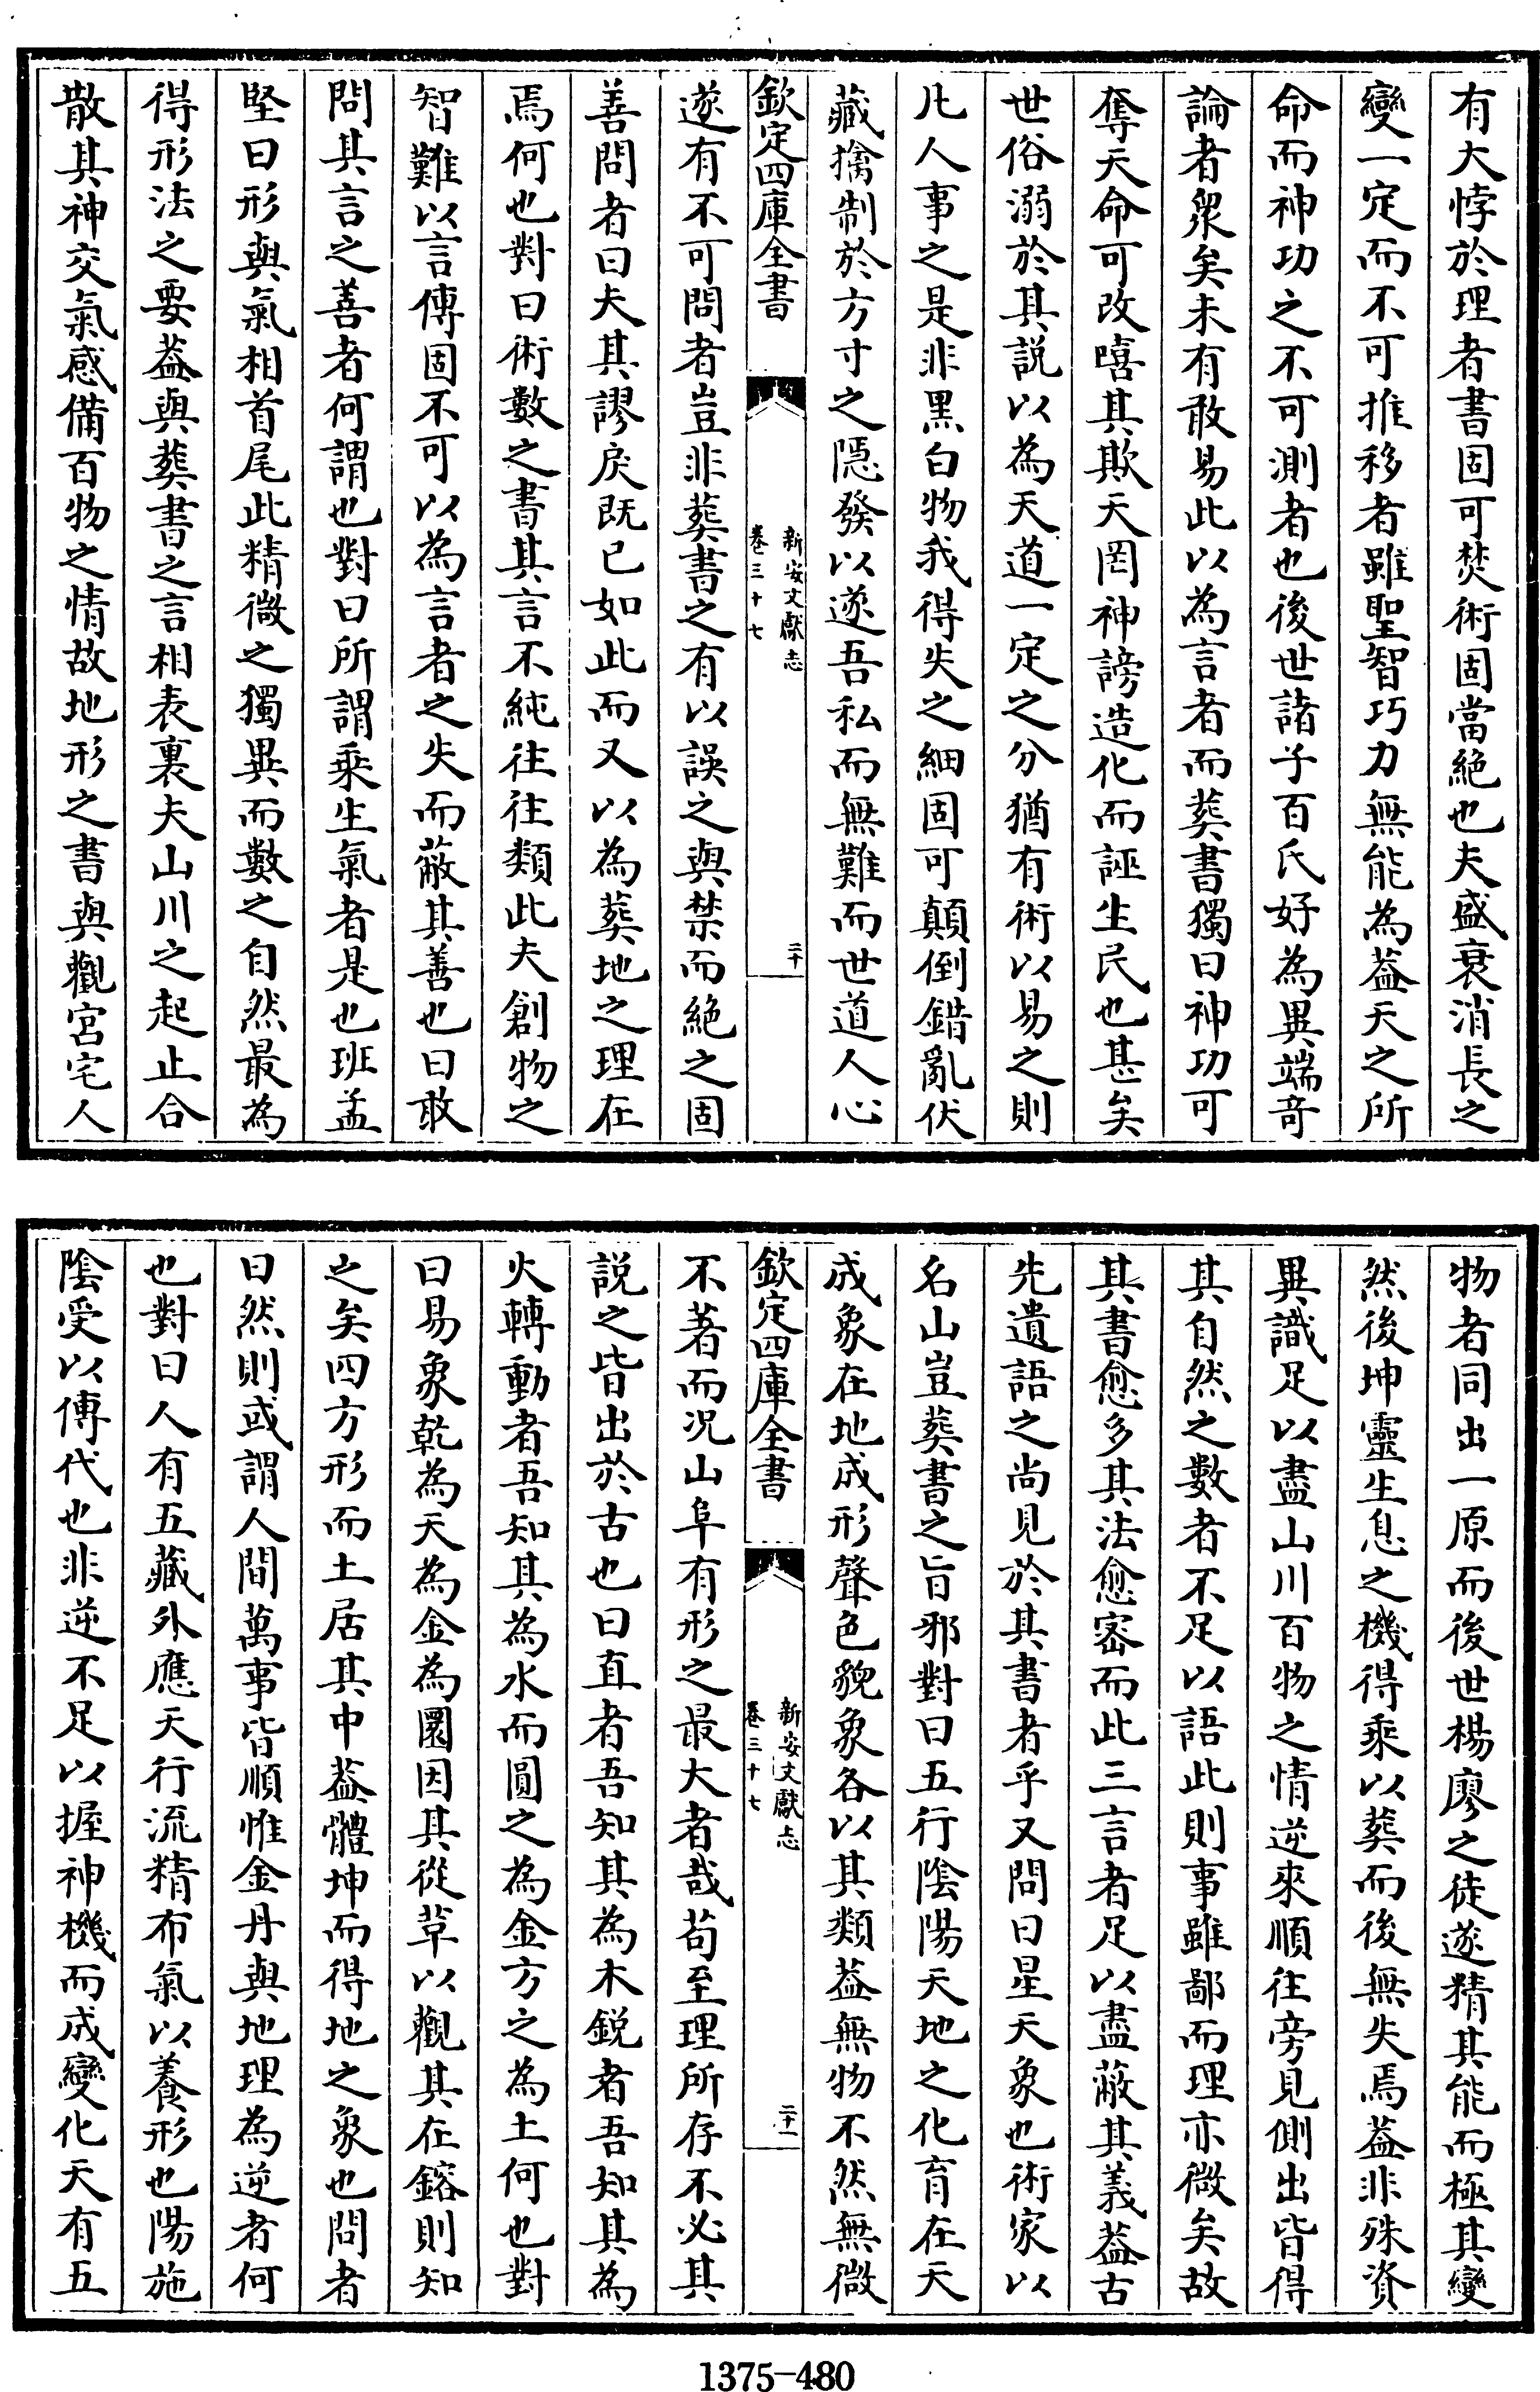 有大悖於理者書固可焚術固當絶也夫盛衰消長之
變一定而不可推移者雖聖智巧力無能為葢天之所
命而神功之不可測者也後世諸子百氏好為異端竒
論者衆矣未有敢易此以為言者而葬書獨曰神功可
奪天命可改嘻其欺天罔神謗造化而誣生民也甚矣
世俗溺於其說以為天道一定之分猶有術以易之則
凡人事之是非黑白物我得失之細固可顛倒錯亂伏
藏擒制於方寸之隱發以遂吾私而無難而世道人心
欽定四庫全書
新安文獻志
卷三十七
二十
遂有不可問者豈非葬書之有以誤之與禁而絶之固
善問者曰夫其謬戾既已如此而又以為葬地之理在
焉何也對曰術數之書其言不純往往類此夫創物之
智難以言傳固不可以為言者之失而蔽其善也曰敢
問其言之善者何謂也對曰所謂乘生氣者是也班孟
堅曰形與氣相首尾此精微之獨異而數之自然最為
得形法之要葢與葬書之言相表裏夫山川之起止合
散其神交氣感備百物之情故地形之書與觀宮宅人
物者同出一原而後世楊廖之徒遂精其能而極其變
然後坤靈生息之機得乘以葬而後無失焉葢非殊資
異識足以盡山川百物之情逆來順往旁見側出皆得
其自然之數者不足以語此則事雖鄙而理亦微矣故
其書愈多其法愈密而此三言者足以盡蔽其義葢古
先遺語之尚見於其書者乎又問曰星天象也術家以
名山豈葬書之旨邪對曰五行隂陽天地之化育在天
成象在地成形聲色貌象各以其類葢無物不然無微
欽定四庫全書
新安文獻志
卷三十七
二十一
不著而况山阜有形之最大者哉茍至理所存不必其
說之皆出於古也曰直者吾知其為木銳者吾知其為
火轉動者吾知其為水而圓之為金方之為土何也對
曰易象乾為天為金為圜因其從革以觀其在鎔則知
之矣四方形而土居其中葢體坤而得地之象也問者
曰然則或謂人間萬事皆順惟金丹與地理為逆者何
也對曰人有五藏外應天行流精布氣以養形也陽施
隂受以傳代也非逆不足以握神機而成變化天有五
1375-480